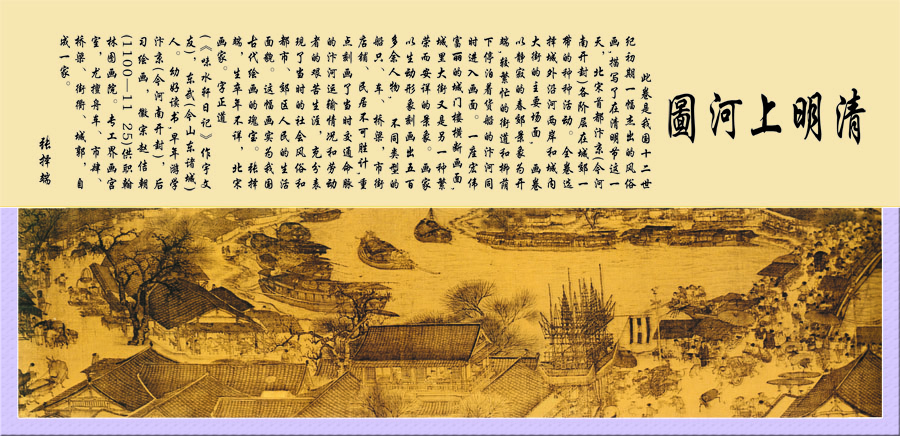 清明上河圖
此卷是我国十二世
纪初期一幅杰出的风俗
画,描写了在清明节这一
天, 北宋首都汴京(今河
南开封)各阶层在城郊一
带的种种活动。全卷选
择城外沿河两岸和城内
大街的主要场面, 画卷
以静寂的春郊景象为开
端,较繁忙的街道和柳荫
下停泊着货船的汴河同
时进入画面。一座宏伟
富丽的城门楼横新画面,
城里大街又是另一种繁
荣而安详的景象。画家
以生动形象刻画出五百
多余人物, 不同类型的
船只、车、桥梁,市街
店铺、民居不可胜计,重
点刻画了当时交通命脉
的汴河运输情况和劳动
者的艰苦生涯,充分表
现了当时的社会风俗和
都市、郊区人民的生活
面貌。 这幅画实为我国
古代绘画的瑰宝。张择
端,生卒年不详,北宋
画家。字正道
(《味水轩日记》作字文
友),东武(今山东诸城)
人。幼好读书,早年游学
汴京(今河南开封),后
习绘画,徽宗赵佶朝
(1100—11 25)供职翰
林图画院。专工界画宫
室,尤擅舟车、市肆、
桥梁、街衢、城郭,自
成一家。
张择端